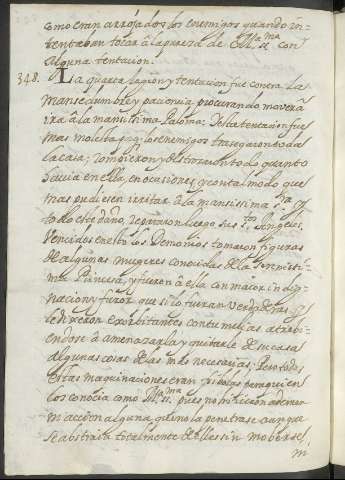 como eran arrojados los enemigos quando in-
tentaban tocar â la pureza de M.ª SS.ma con
alguna tentacion.
348. La quarta legion y tentacion fue contra la
mansedumbre y paciencia, procurando mover â
ira â la mansissima Paloma: Esta tentacion fue
mas molesta, pq. los enemigos trasegaron toda
la casa; rompieron y destrozaron todo quanto
havia en ella, en ocasiones y con tal modo que
mas pudiesen irritar â la mansissima S.ra y
todo este daño, repararon luego sus S.tos Angeles.
Vencidos en esto los Demonios tomaron figuras
de algunas mugeres conocidas de la Serenissi-
ma Princesa, y fueron â ella con maior indig-
nacion y furor que si lo fueran verdaderas, y
le dixeron exorbitantes contumelias atrevi-
endose â amenazarla y quitarle de su casa
algunas cosas de las mas necesarias. Pero todas
estas maquinaciones eran frivolas para quien
los conocia como M.ª SS.ma pues no hicieron ademan
ni accion alguna que no la penetrase aunque
se abstraia totalmente de ellas sin moberse,
ni